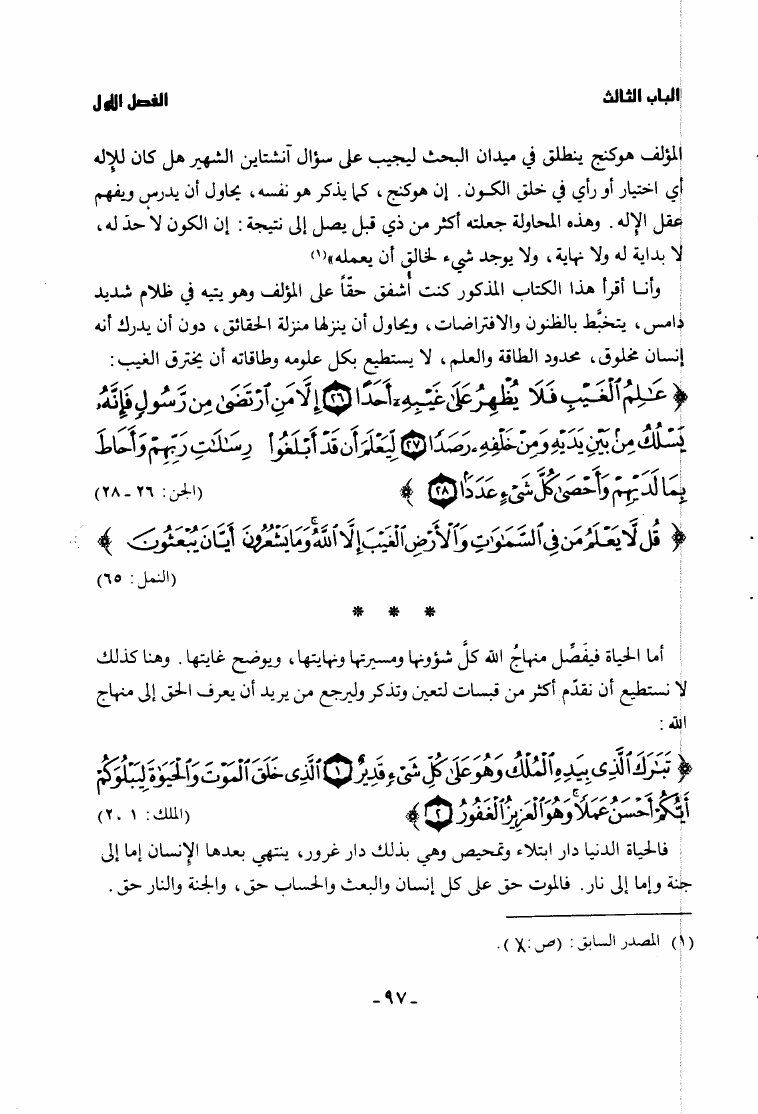 الباب الثالث
الفصل الأول
المؤلف هوكنج ينطلق في ميدان البحث ليجيب على سؤال آنشتاين الشهير هل كان للإله
أي اختيار أو رأي في خلق الكـون. إن هوكنج، كما يذكر هو نفسه، يحاول أن يدرس ويفهم
عقل الإله. وهذه المحاولة جعلته أكثر من ذي قبل يصل إلى نتيجة: إن الكون لا حدّ له،
لا بداية له ولا نهاية، ولا يوجد شيء لخالق أن يعمله»(١)
وأنا أقرأ هذا الكتاب المذكور كنت أشفق حقاً على المؤلف وهو يتيه في ظلام شديد
دامس، يتخبَّط بالظنون والافتراضات، ويحاول أن ينزلها منزلة الحقائق، دون أن يدرك أنه
إنسان مخلوق، محدود الطاقة والعلم، لا يستطيع بكل علومه وطاقاته أن يخترق الغيب:
﴿ عَـٰلِمُ ٱلْغَيْبِ فَلَا يُظْهِرُ عَلَىٰ غَيْبِهِۦٓ أَحَدًا ۝٢٦ إِلَّا مَنِ ٱرْتَضَىٰ مِن رَّسُولٍ فَإِنَّهُۥ
يَسْلُكُ مِنۢ بَيْنِ يَدَيْهِ وَمِنْ خَلْفِهِۦ رَصَدًا ۝٢٧ لِّيَعْلَمَ أَن قَدْ أَبْلَغُوا۟ رِسَـٰلَـٰتِ رَبِّهِمْ وَأَحَاطَ
بِمَا لَدَيْهِمْ وَأَحْصَىٰ كُلَّ شَىْءٍ عَدَدًۢا ۝٢٨ ﴾ (الجن: ٢٦ ـ ٢٨)
﴿ قُل لَّا يَعْلَمُ مَن فِى ٱلسَّمَـٰوَٰتِ وَٱلْأَرْضِ ٱلْغَيْبَ إِلَّا ٱللَّهُ ۚ وَمَا يَشْعُرُونَ أَيَّانَ يُبْعَثُونَ ﴾
(النمل: ٦٥)
* * *
أما الحياة فيفَصِّل منهاجُ الله كلَّ شؤونها ومسيرتها ونهايتها، ويوضح غايتها. وهنا كذلك
لا نستطيع أن نقدّم أكثر من قبسات لتعين وتذكر وليرجع من يريد أن يعرف الحق إلى منهاج
الله:
﴿ تَبَـٰرَكَ ٱلَّذِى بِيَدِهِ ٱلْمُلْكُ وَهُوَ عَلَىٰ كُلِّ شَىْءٍ قَدِيرٌ ۝١ ٱلَّذِى خَلَقَ ٱلْمَوْتَ وَٱلْحَيَوٰةَ لِيَبْلُوَكُمْ
أَيُّكُمْ أَحْسَنُ عَمَلًا ۚ وَهُوَ ٱلْعَزِيزُ ٱلْغَفُورُ ۝٢ ﴾ (الملك: ١، ٢)
فالحياة الدنيا دار ابتلاء وتمحيص وهي بذلك دار غرور، ينتهي بعدها الإنسان إما إلى
جنة وإما إلى نار. فالموت حق على كل إنسان والبعث والحساب حق، والجنة والنار حق.
(١) المصدر السابق: (ص: ).
ـ ٩٧ ـ